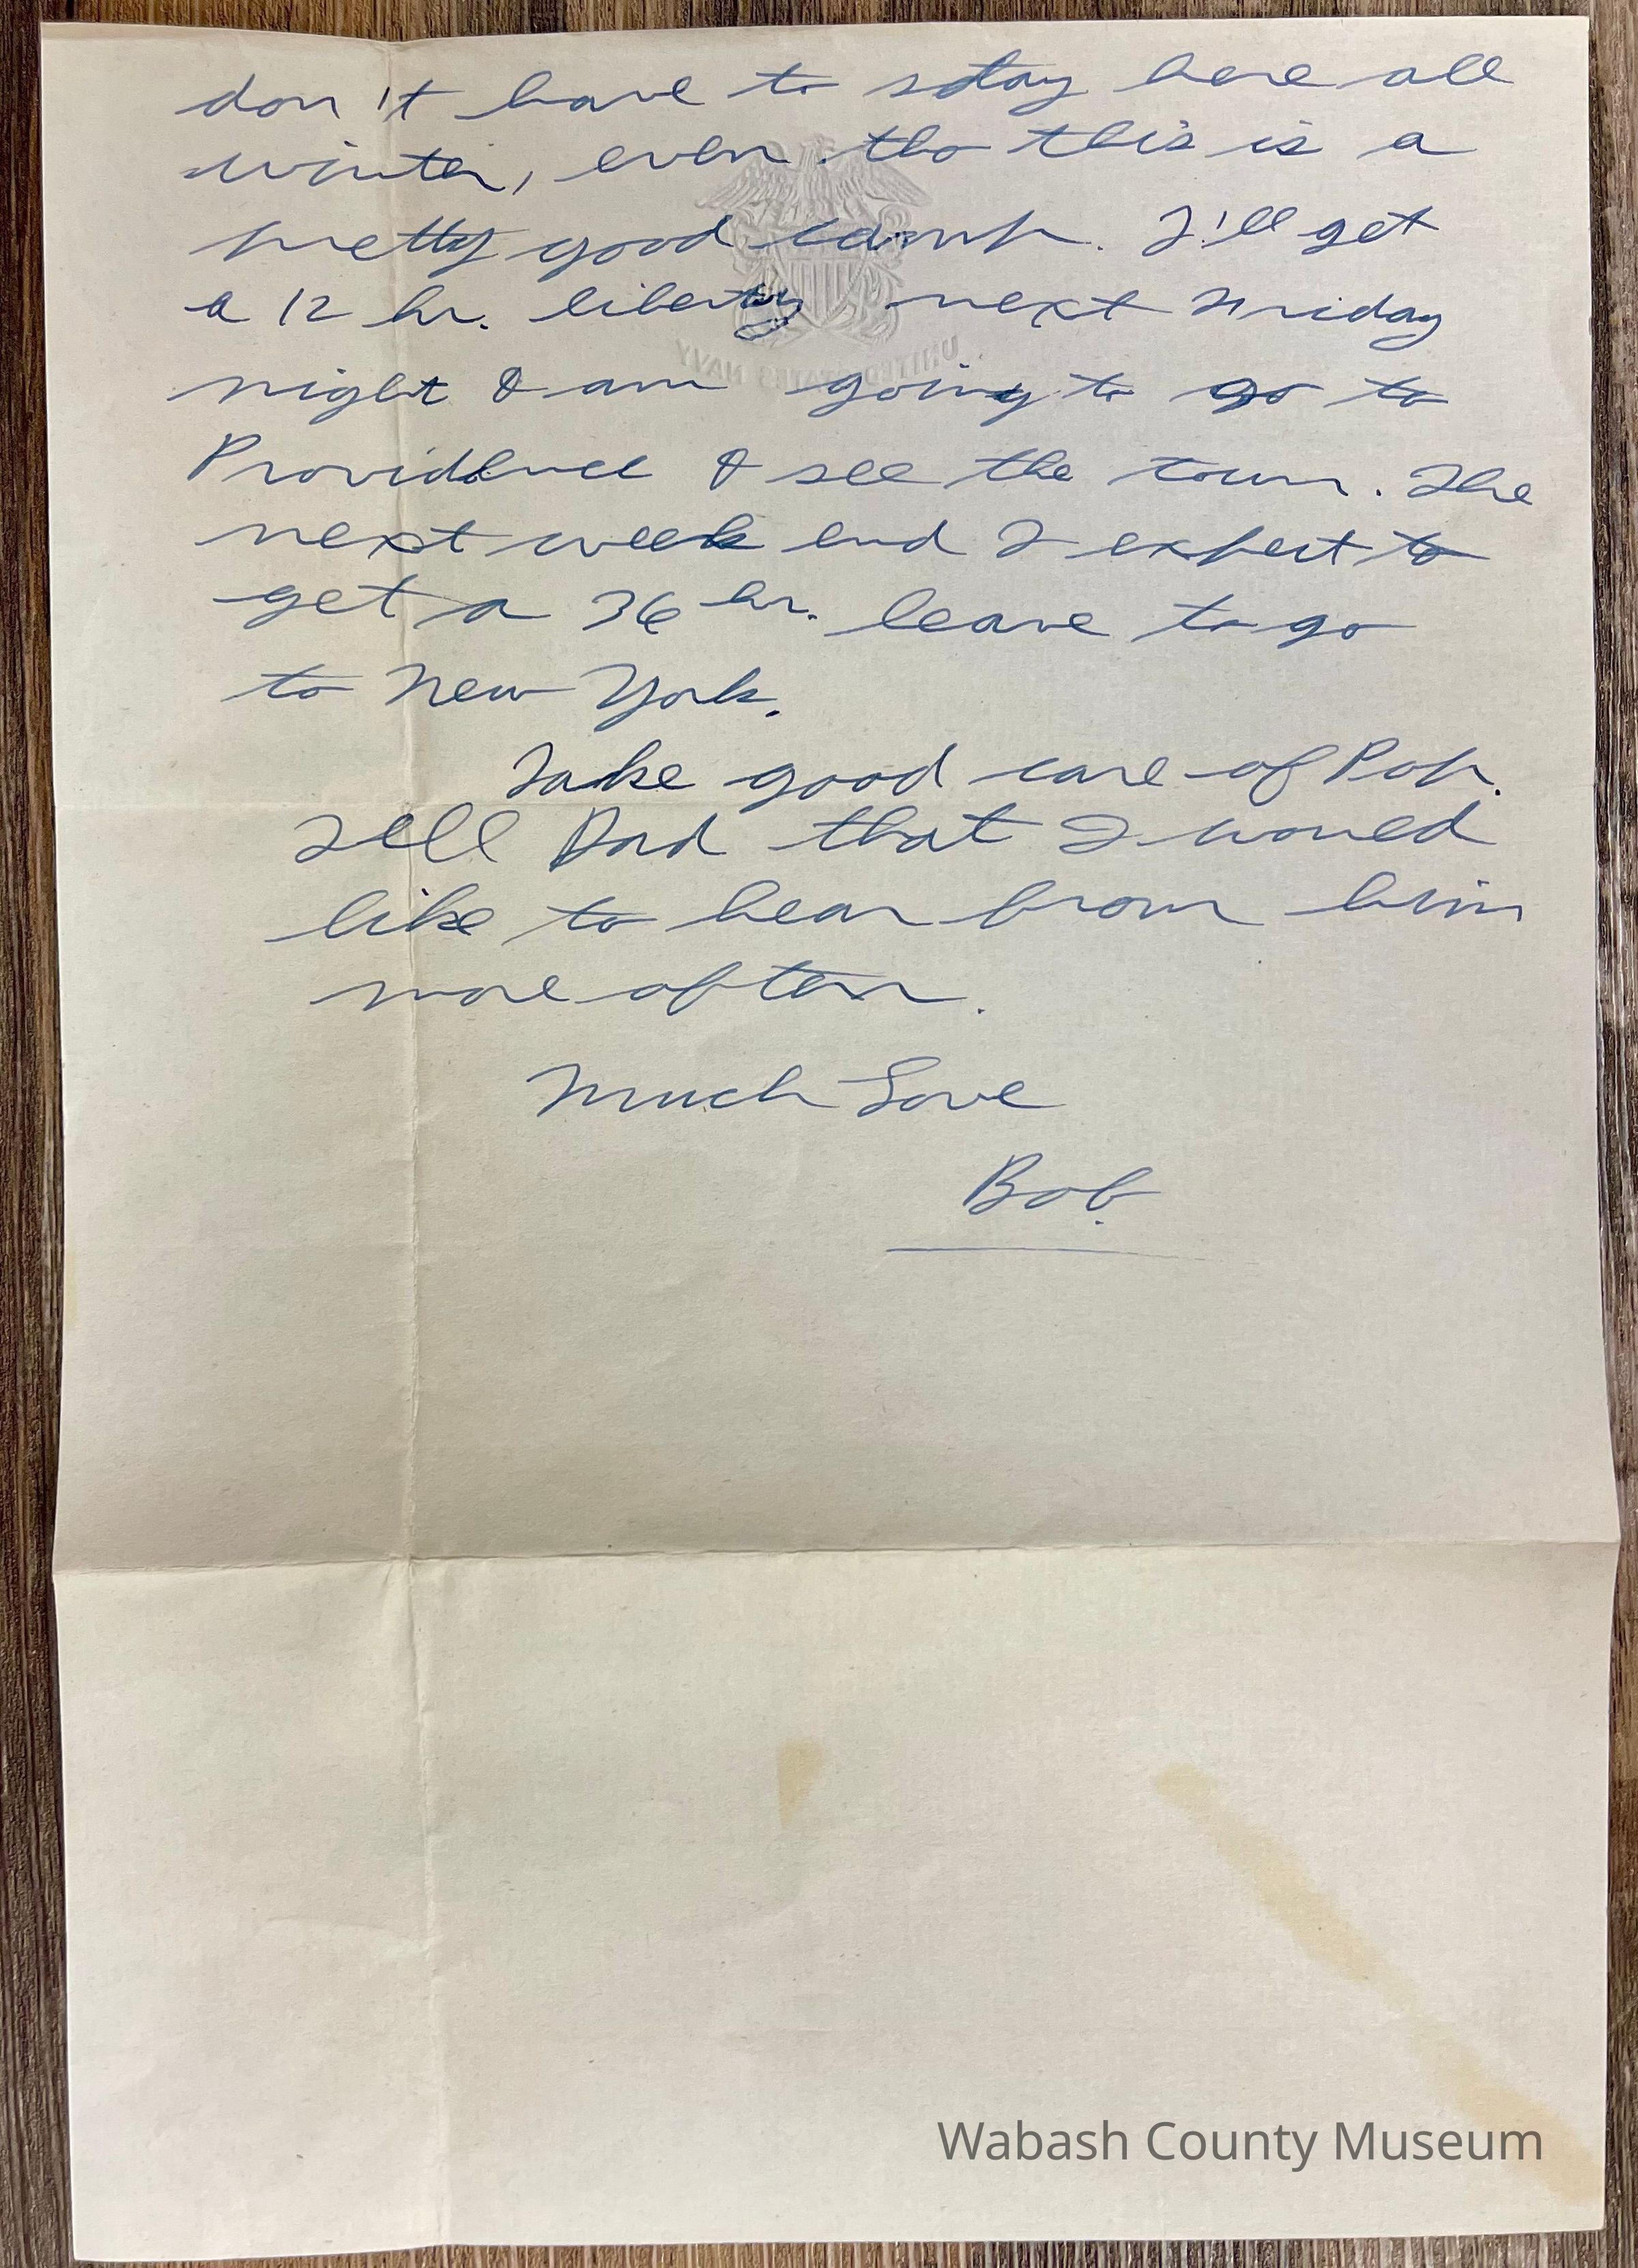 don't have to stay here all
winter, even tho this is a
pretty good camp. I'll get
a 12 hr. liberty next Friday
night & am going to go to
Providence & see the town. The
next week end I expect to
get a 36 hr. leave to go
to New York.
Take good care of Pop.
Tell Dad that I would
like to hear from him
more often.
Much Love
Bob.
UNITED STATES NAVY
Wabash County Museum